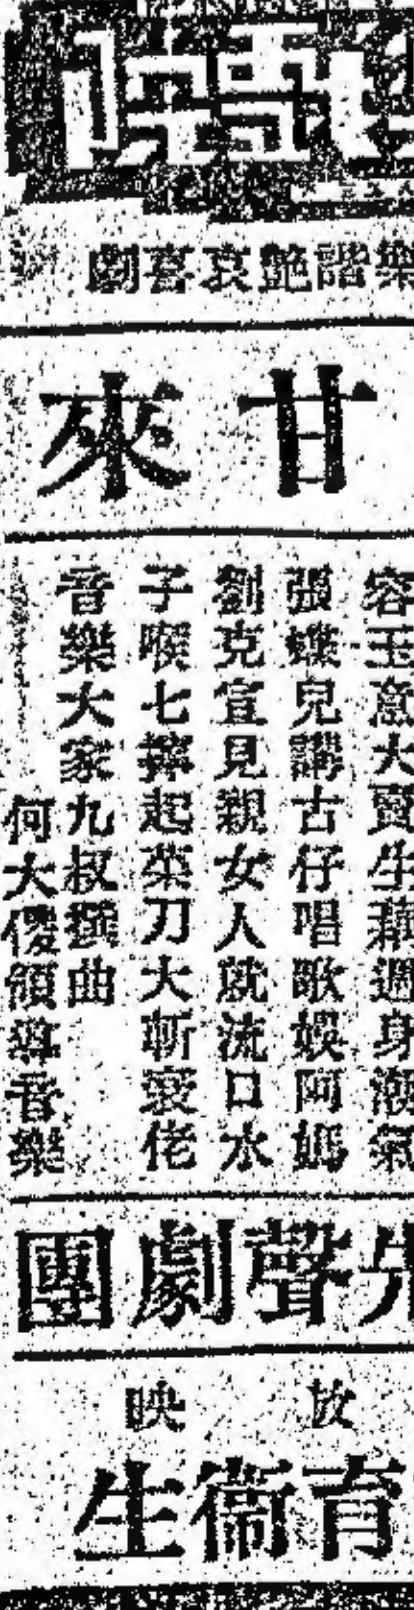 樂諧艷哀喜劇
甘來
容玉意大賣生藕週身潮氣
張蝶兒講古仔唱歌娛阿媽
劉克宣見親女人就流口水
子喉七揸起菜刀大斬衰佬
音樂大家九叔撰曲
何大傻領導音樂
先聲劇團
放映
育衞生